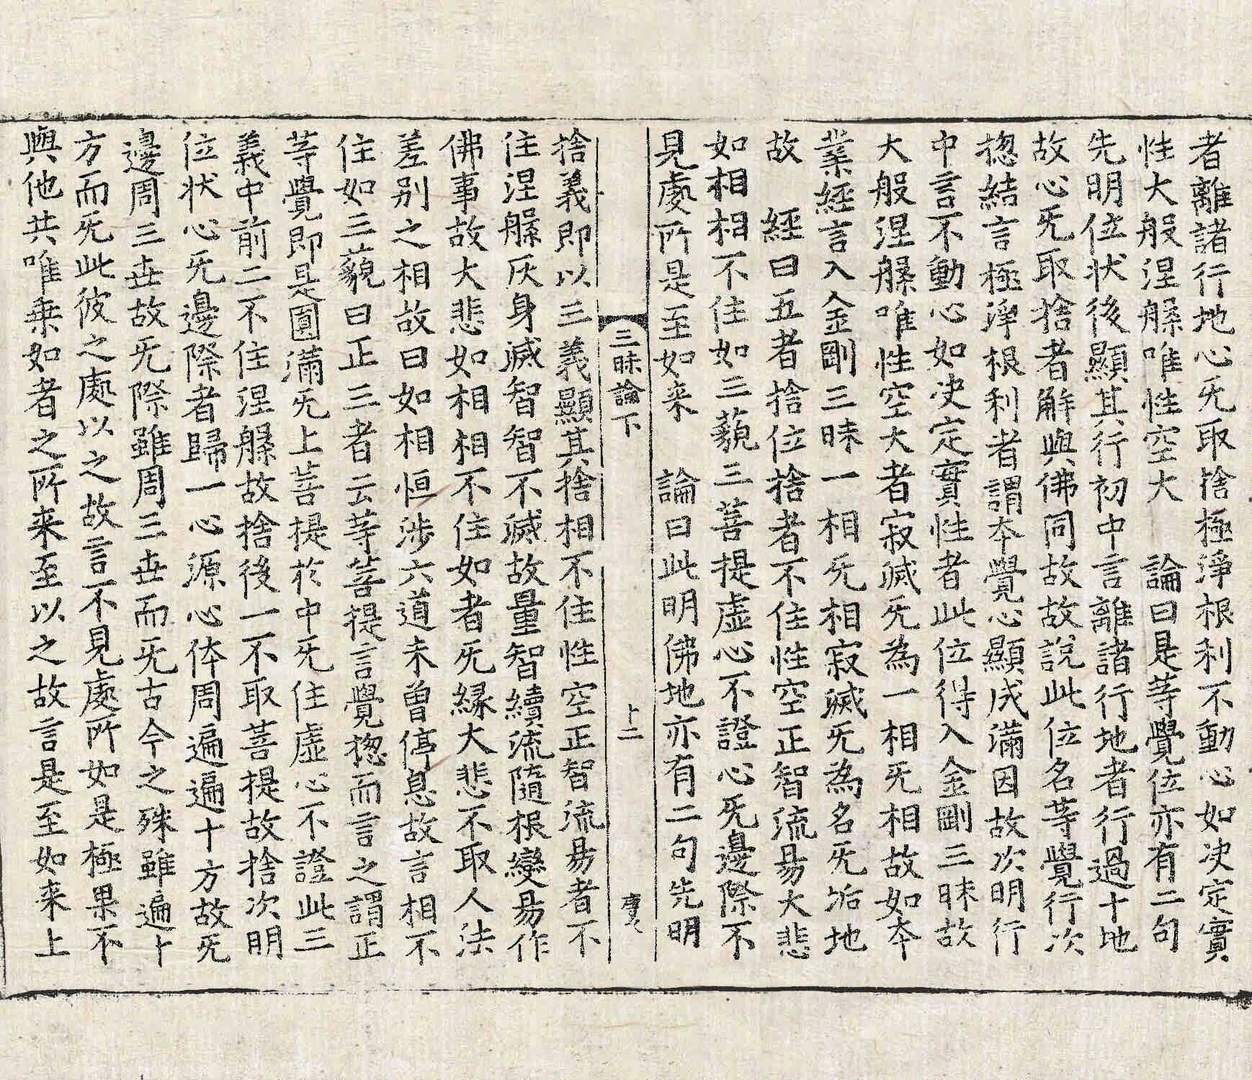 者離諸行地心旡取捨極淨根利不動心如決定實
性大般涅槃唯性空大　論曰是等覺位亦有二句
先明位状後顯其行初中言離諸行地者行過十地
故心旡取捨者解與佛同故故說此位名等覺行次
揔結言極淨根利者謂夲覺心顯成滿因故次明行
中言不動心如决定實性者此位得入金剛三昧故
大般涅槃唯性空大者寂滅旡為一相旡相故如夲
業經言入金剛三昧一相旡相寂滅旡為名旡垢地
故　經曰五者捨位捨者不住性空正智流易大悲
如相相不住如三藐三菩提虛心不證心旡邊際不
見處所是至如来　論曰此明佛地亦有二句先明
三昧論下　十二
捨義即以三義顯其捨相不住性空正智流易者不
住涅槃灰身滅智智不滅故量智續流隨根變易作
佛事故大悲如相相不住如者旡縁大悲不取人法
差别之相故曰如相恒涉六道未曽停息故言相不
住如三藐曰正三者云等菩提言覺揔而言之謂正
等覺即是圓滿旡上菩提於中旡住虛心不證此三
義中前二不住涅槃故捨後一不取菩提故捨次明
位状心旡邊際者歸一心源心体周遍遍十方故旡
邊周三世故旡際雖周三世而旡古今之殊雖遍十
方而旡此彼之處以之故言不見處所如是極果不
與他共唯乗如者之所来至以之故言是至如来上